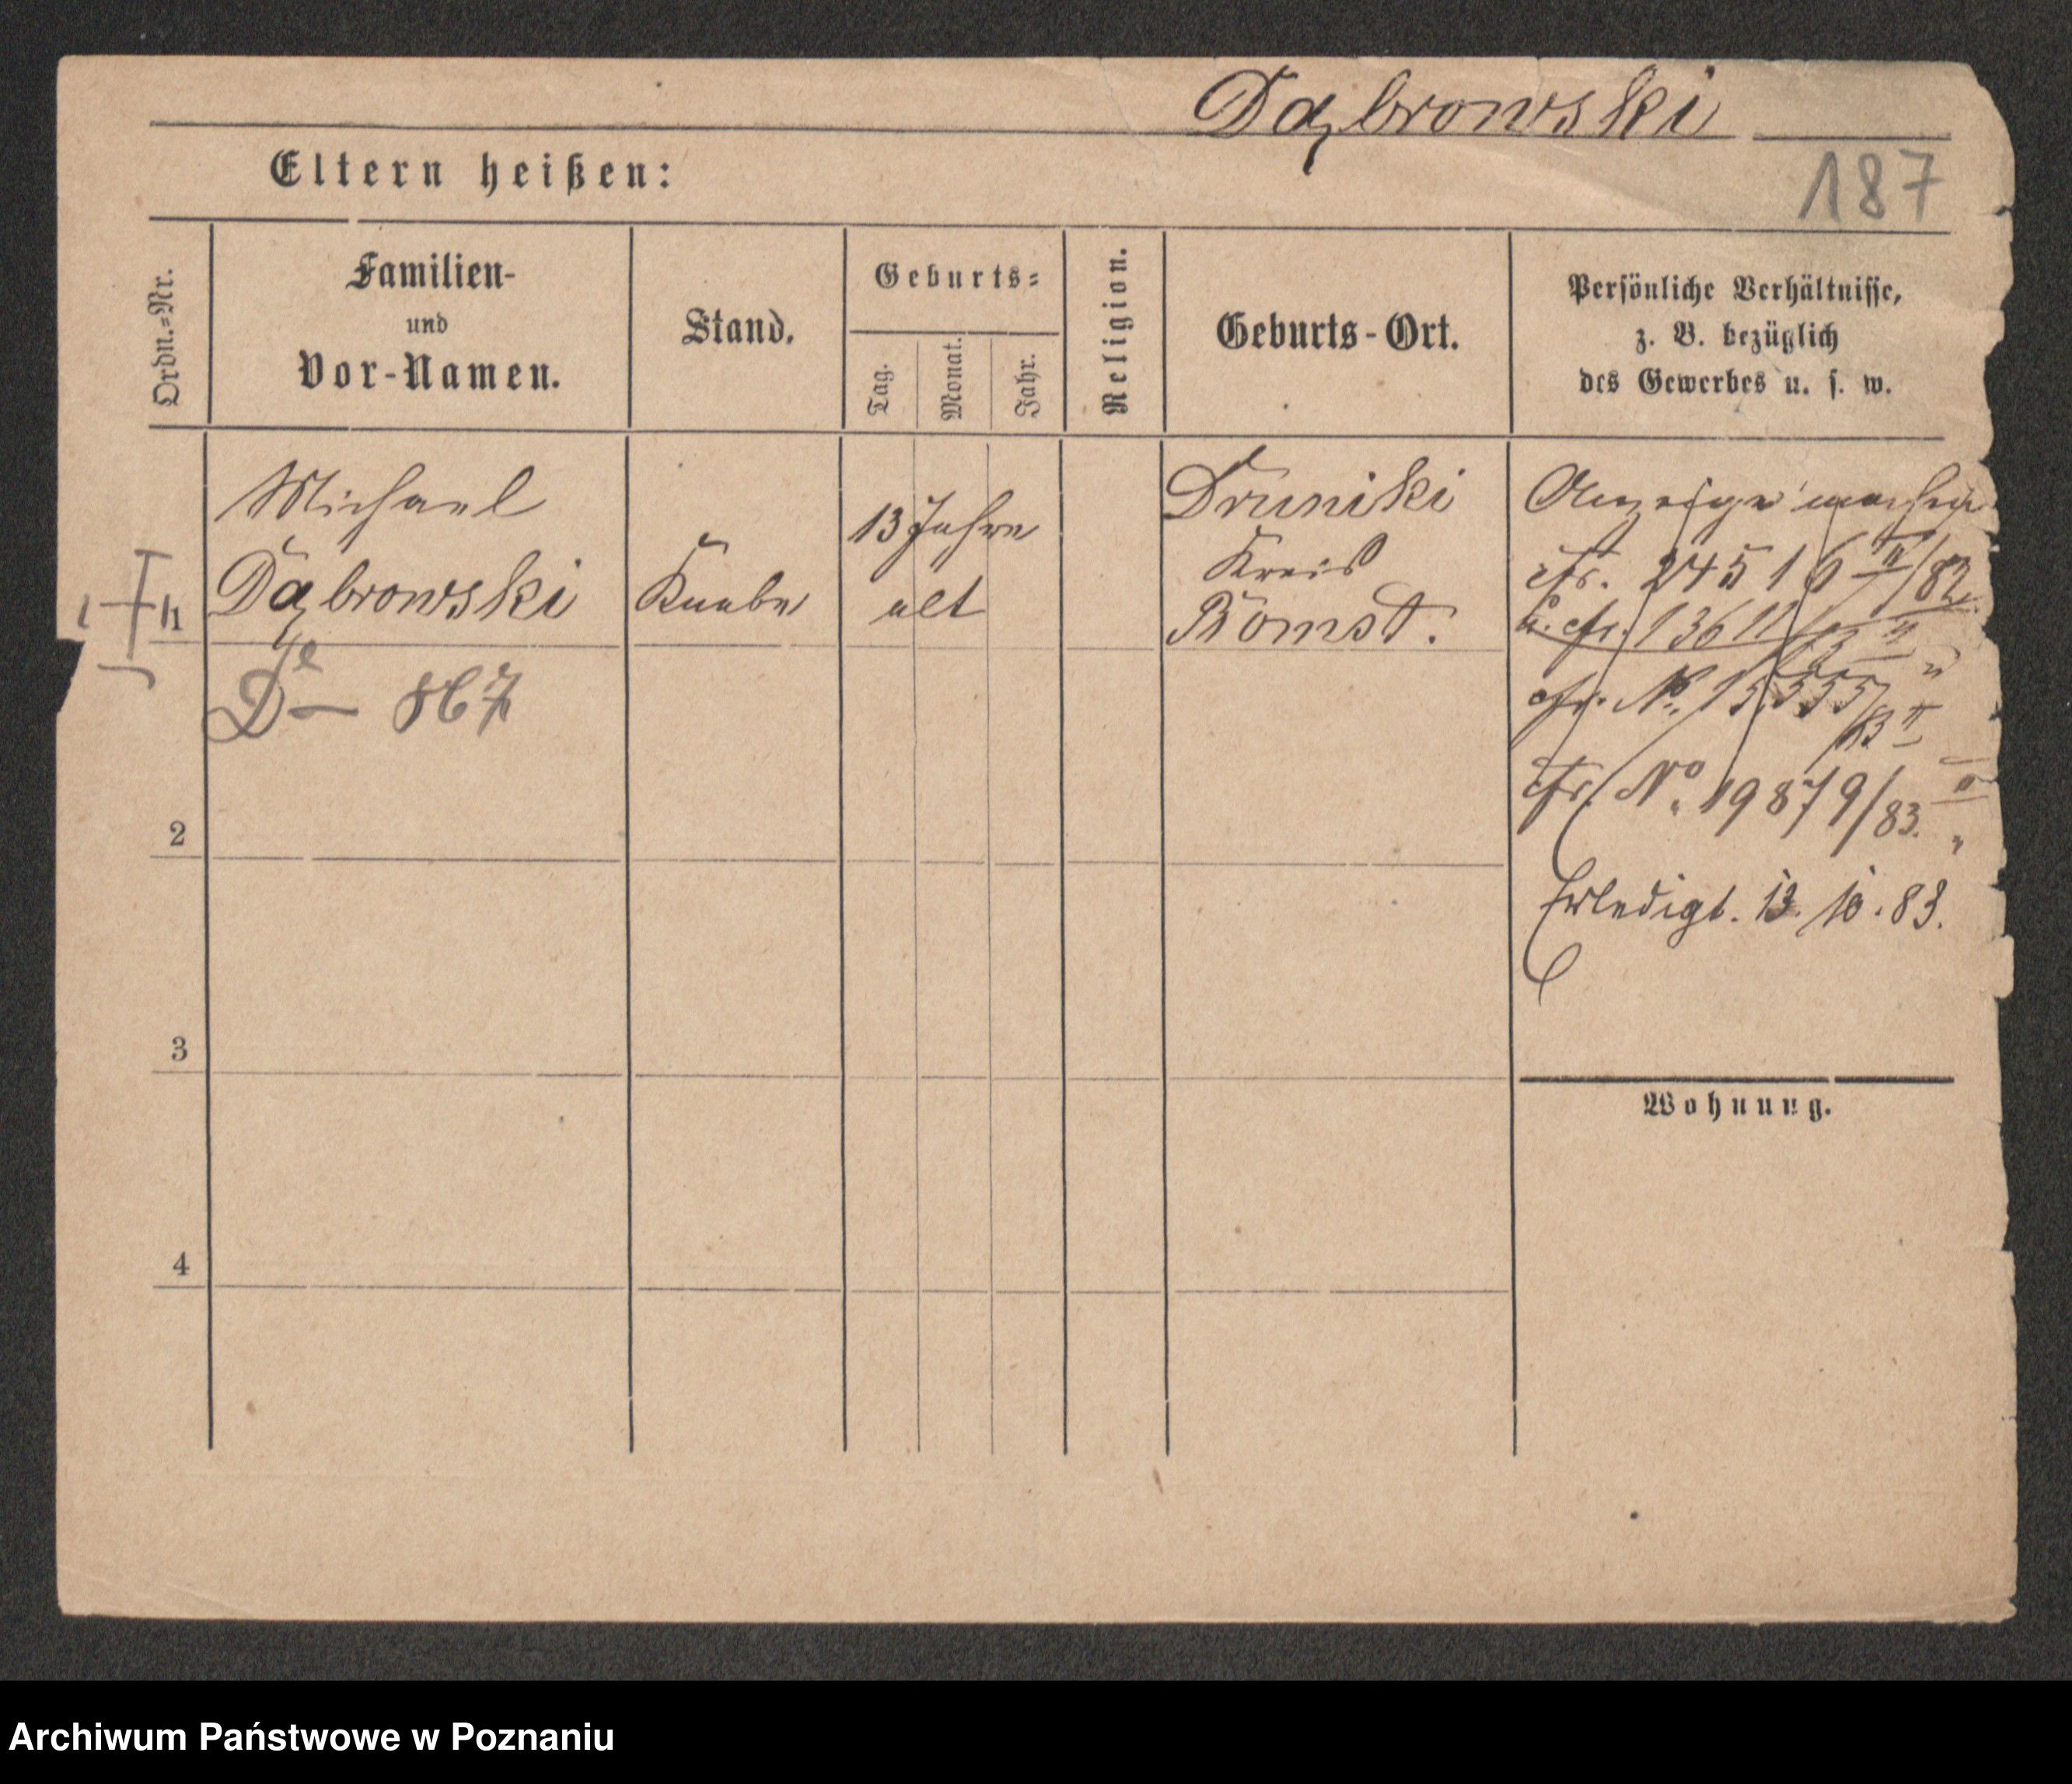 Dąbrowski
Eltern heißen:
187
Ordn.-Nr.
Familien-
und
Vor-Namen.
Stand.
Geburts-
Tag.
Monat.
Jahr.
Religion.
Geburts-Ort.
Persönliche Verhältnisse,
z. B. bezüglich
des Gewerbes u. s. w.
1
Michael
Dąbrowski
Knabe
13 Jahre
alt
Druniki
Kreis
Bomst.
Anzeige machen
cfr. 24516 II/82.
u. cfr. 13611/83 II
cfr. No. 15355/83 II
cfr. No. 19879/83. II
Erledigt. 13. 10. 83.
D 867
2
3
4
Wohnung.
Archiwum Państwowe w Poznaniu